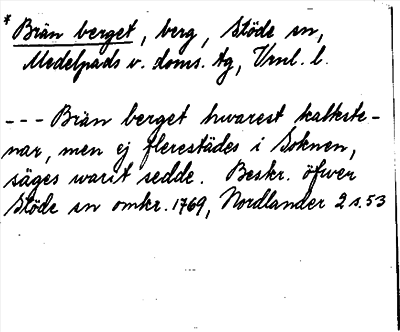 * Brän berget, berg, Stöde sn,
Medelpads v. doms. tg, Vrnl. l.
--- Brän berget hwarest kalkste-
nar, men ej flerestädes i Soknen,
säges warit sedde. Beskr. öfwer
Stöde sn omkr. 1769, Nordlander 2 s. 53